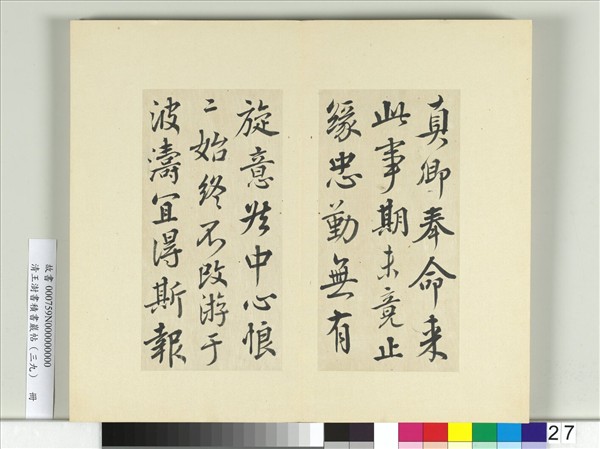 真卿奉命来
此事期未竟止
緣忠勤無有
旋意然中心悢
〻始終不改游于
波濤宜得斯報
故書 000759N000000000
清王澍書積書巖帖（三九） 冊
27